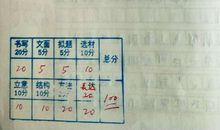 书写 文面 拟题 选材 总分
20分 5分 5分 10分
20 5 5 10
立意 结构 方法 表达
10分 10分 20分 20
10 10 20 20 100